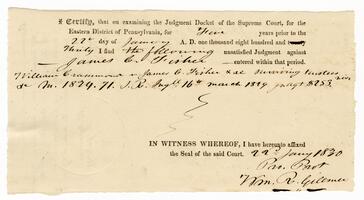 I Certify, that on examining the Judgment Docket of the Supreme Court, for the
Eastern District of Pennsylvania, for Ten years prior to the
22d day of January A. D. one thousand eight hundred and twenty
thirty I find the following unsatisfied Judgment against
James C. Fisher entered within that period.
William Crammond v James C. Fisher & al surviving trustees
& M. 1829. 71. 16th march 1829
IN WITNESS WHEREOF, I have hereunto affixed
the Seal of the said Court. 22d Jany 1830
Pro. Prot
Wm. R.